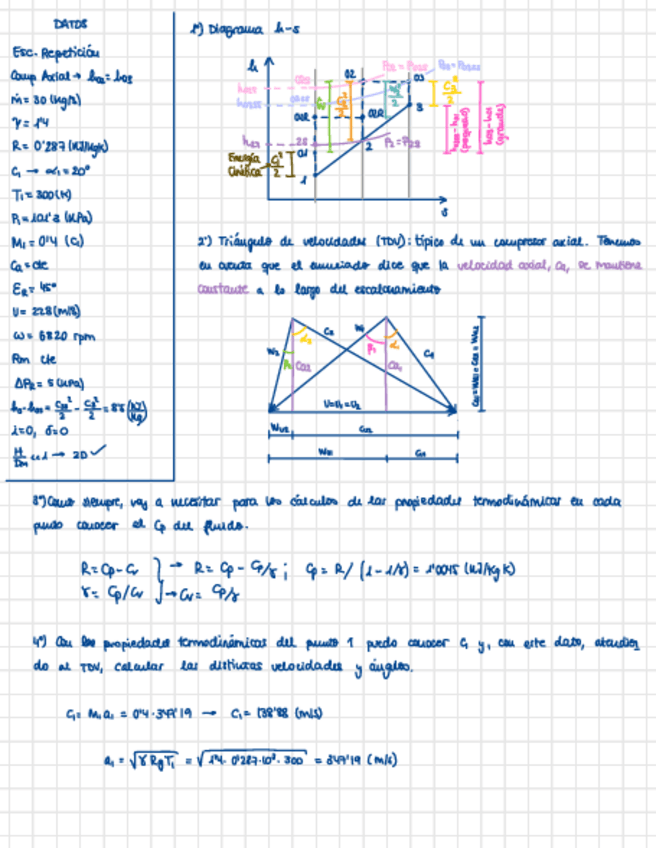 DATOS
Esc. Repetición
Comp Axial → h02 = h03
ṁ = 30 (kg/s)
γ = 1'4
R = 0'287 (kJ/kgK)
C1 → α1 = 20°
T1 = 300 (K)
P1 = 101'3 (kPa)
M1 = 0'4 (C1)
Ca = cte
ER = 45°
U = 228 (m/s)
ω = 6820 rpm
Rm cte
i=0, δ=0
→ 2D ✓
1º) Diagrama h-s
h
02
03
01
1
2
3
s
Energía
Cinética
(pequeño)
(grande)
2º) Triángulo de velocidades (TDV): típico de un compresor axial. Tenemos
en cuenta que el enunciado dice que la velocidad axial, Ca, se mantiene
constante a lo largo del escalonamiento
W2
C2
W1
C1
U=U1=U2
3º) Como siempre, voy a necesitar para los cálculos de las propiedades termodinámicas en cada
punto conocer el Cp del fluido.
R = Cp - Cv → R = Cp - Cp/γ ; Cp = R/ (1 - 1/γ) = 1'0045 (kJ/kg K)
γ = Cp/Cv → Cv = Cp/γ
4º) Con las propiedades termodinámicas del punto 1 puedo conocer C1 y, con este dato, atendien
do al TDV, calcular las distintas velocidades y ángulos.
C1 = M1 a1 = 0'4 · 347'19 → C1 = 138'88 (m/s)
a1 = √γ Rg T1 = √1'4 · 0'287 · 10³ · 300 = 347'19 (m/s)